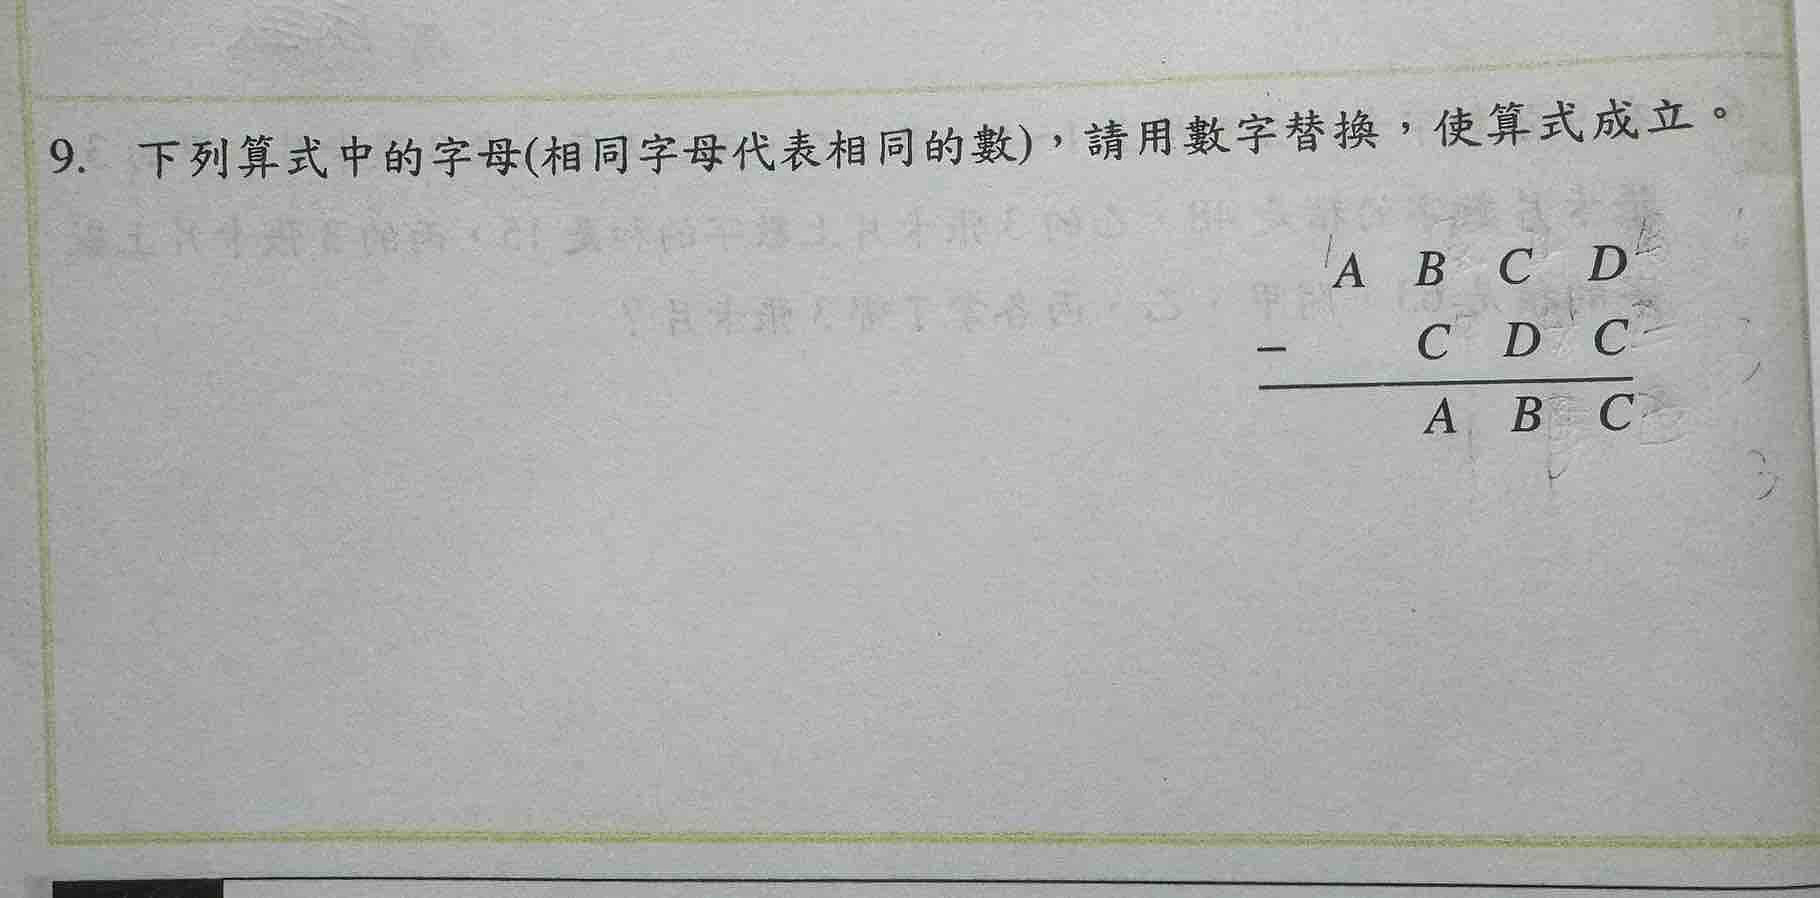 9. 下列算式中的字母(相同字母代表相同的數)，請用數字替換，使算式成立。
A B C D
− C D C
A B C